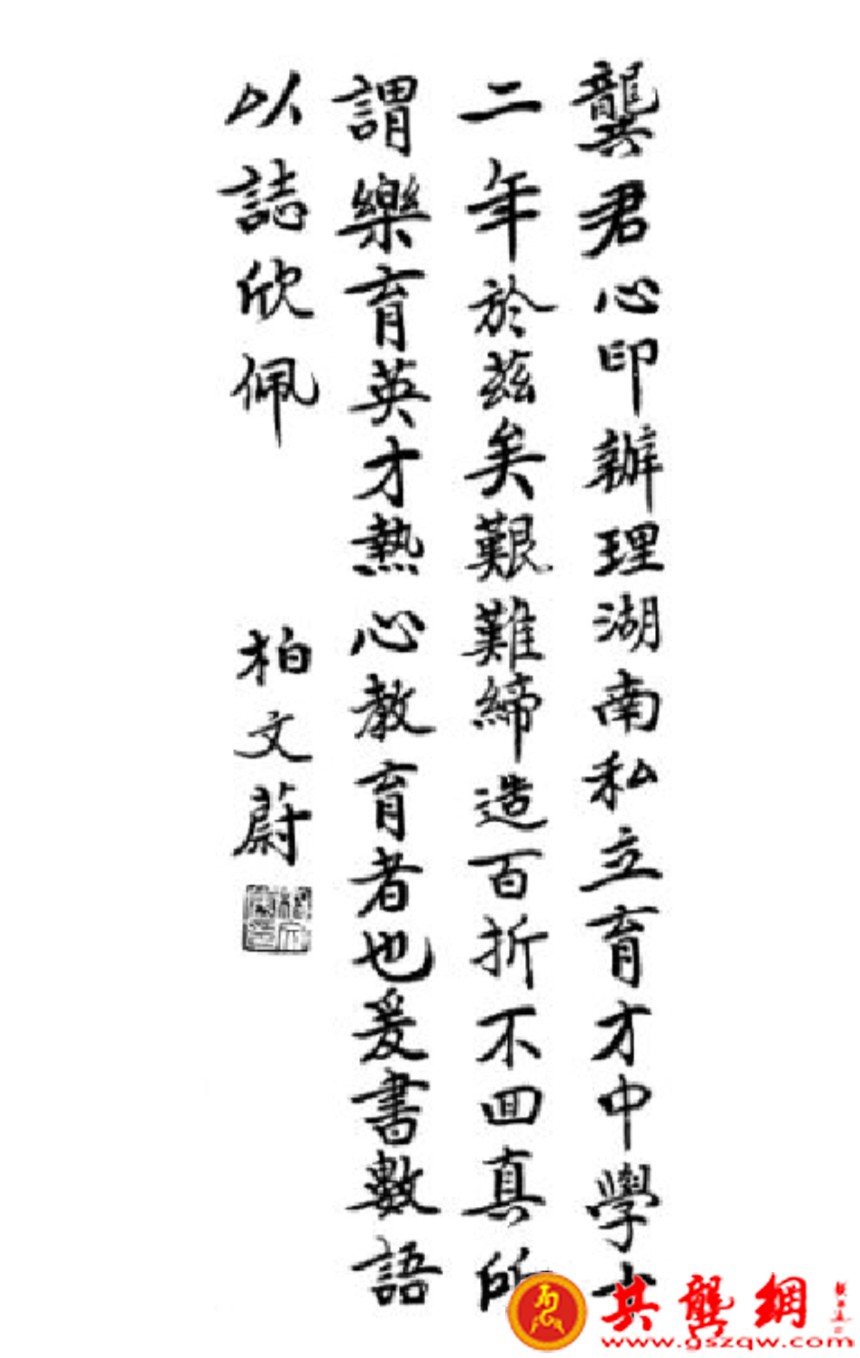 龔君心印辦理湖南私立育才中學十
二年於茲矣艱難締造百折不回真所
謂樂育英才熱心教育者也爰書數語
以誌欣佩
柏文蔚
共龔網
www.gszqw.com